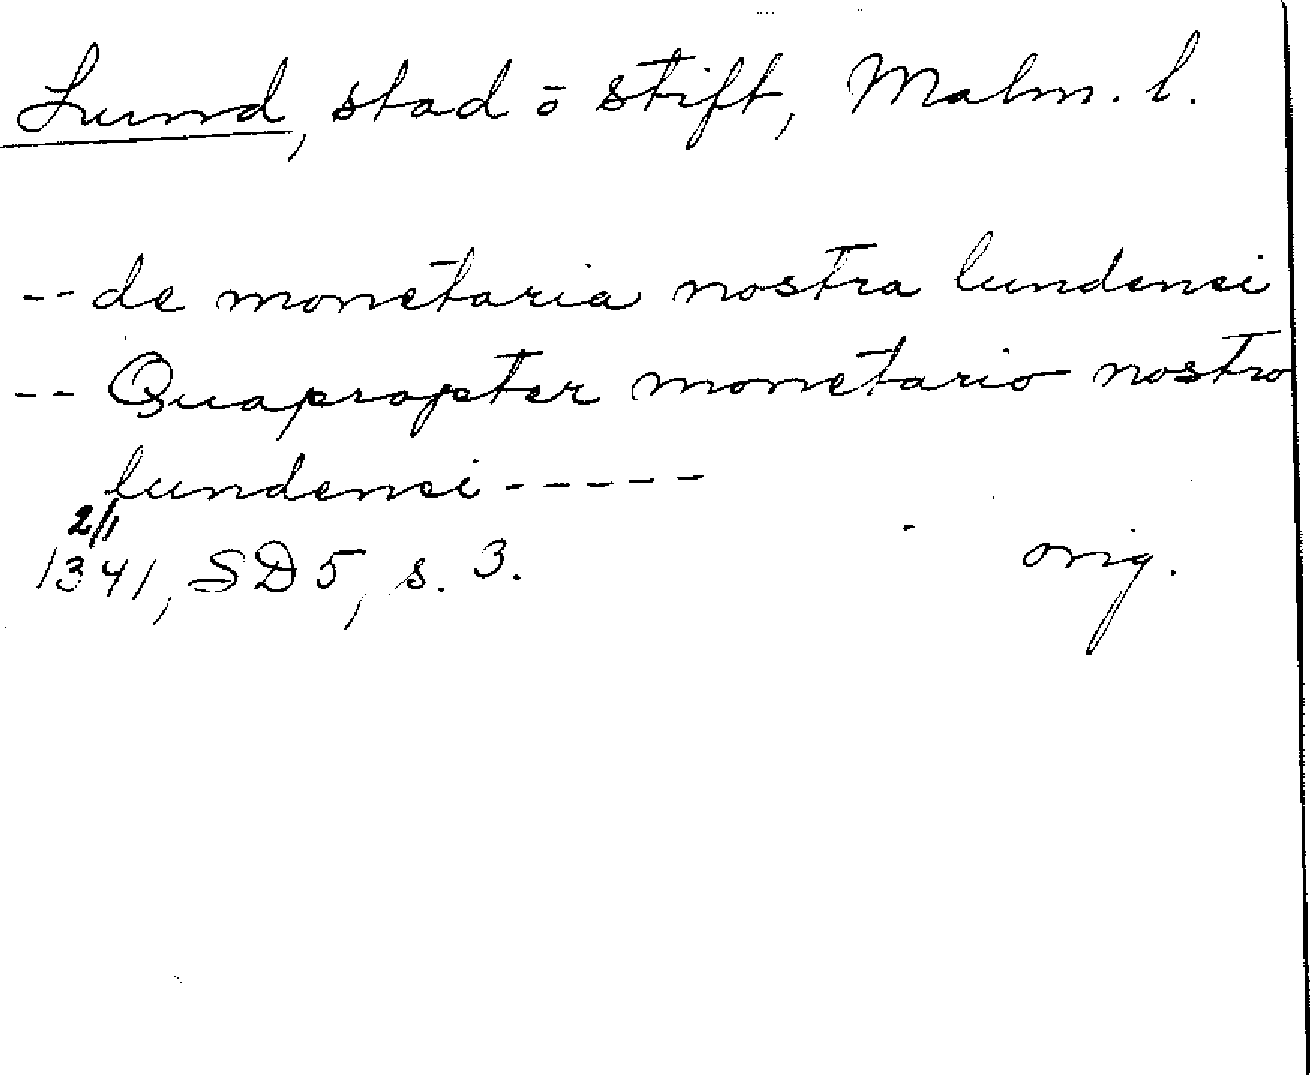 Lund, stad ō stift, Malm. l.
-- de monetaria nostra lundensi
-- Quapropter monetario nostro
lundensi -----
2/1
1341, SD 5, s. 3. orig.